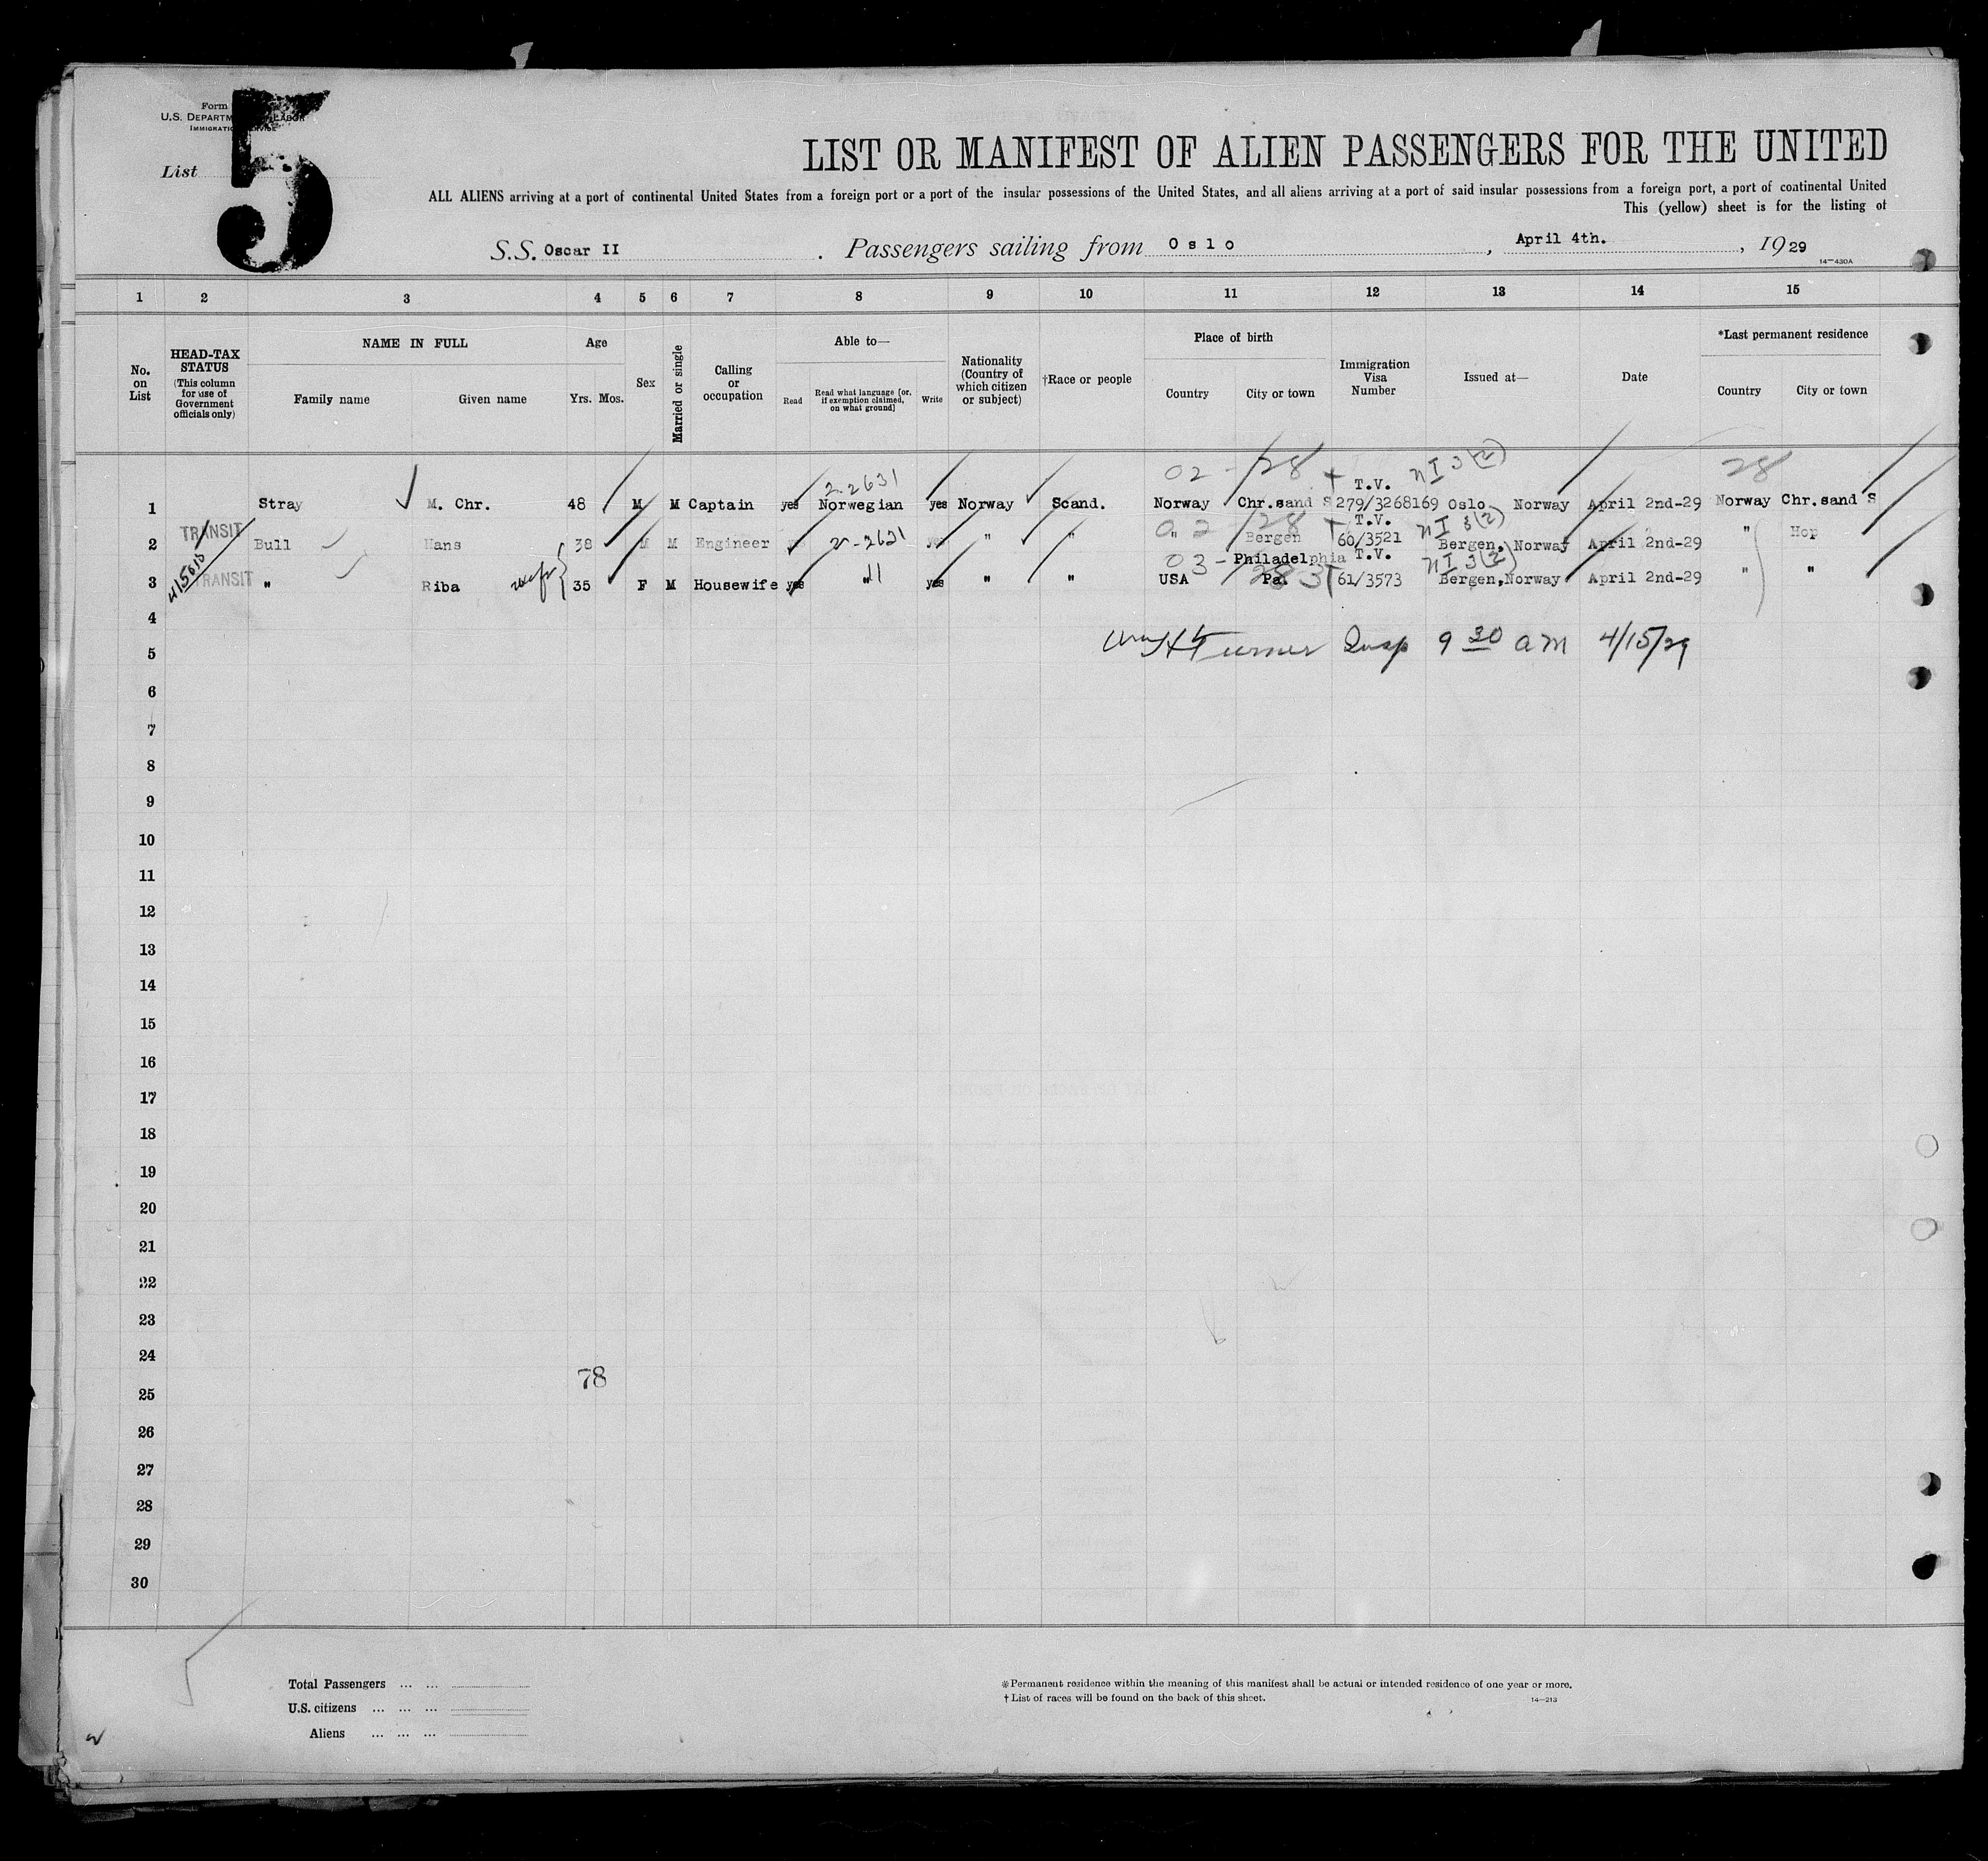 Form
U.S. DEPARTM LABOR
IMMIGRATION SERVICE
List 5
LIST OR MANIFEST OF ALIEN PASSENGERS FOR THE UNITED
ALL ALIENS arriving at a port of continental United States from a foreign port or a port of the insular possessions of the United States, and all aliens arriving at a port of said insular possessions from a foreign port, a port of continental United
This (yellow) sheet is for the listing of
S.S. Oscar II . Passengers sailing from Oslo , April 4th. , 1929
14—430A
1 2 3 4 5 6 7 8 9 10 11 12 13 14 15
No. on List
HEAD-TAX STATUS (This column for use of Government officials only)
NAME IN FULL
Family name Given name
Age
Yrs. Mos.
Sex
Married or single
Calling or occupation
Able to—
Read Read what language [or, if exemption claimed, on what ground] Write
Nationality (Country of which citizen or subject)
†Race or people
Place of birth
Country City or town
Immigration Visa Number
Issued at—
Date
*Last permanent residence
Country City or town
2-2631 02 - 28 T.V. NI 3(2) 28
1 Stray M. Chr. 48 M M Captain yes Norwegian yes Norway Scand. Norway Chr.sand S 279/3268169 Oslo, Norway April 2nd-29 Norway Chr.sand S
02 - 28 T.V. NI 3(2)
2 TRANSIT Bull Hans 38 M M Engineer yes 2-2631 yes " " " Bergen 60/3521 Bergen, Norway April 2nd-29 " Hop
415010
03 - Philadelphia T.V. NI 3(2)
3 TRANSIT " Riba wife 35 F M Housewife yes " yes " " USA Pa. 61/3573 Bergen, Norway April 2nd-29 " "
4
5 Turner Insp 9 30 am 4/15/29
6
7
8
9
10
11
12
13
14
15
16
17
18
19
20
21
22
23
24
78
25
26
27
28
29
30
Total Passengers ... ...
U.S. citizens ... ... ...
Aliens ... ... ...
*Permanent residence within the meaning of this manifest shall be actual or intended residence of one year or more.
†List of races will be found on the back of this sheet.
14—213